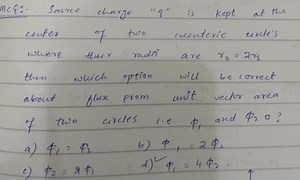 MCQ:- Source charge "q" is kept at the
center of two cocentric circle's
where their radii are r₂ = 2r₁
then which option will be correct
about flux from unit vector area
of two circles i.e ϕ₁ and ϕ₂ ?
a) ϕ₁ = ϕ₂ b) ϕ₁ = 2ϕ₂
c) ϕ₂ = 2ϕ₁ d) ϕ₁ = 4ϕ₂.